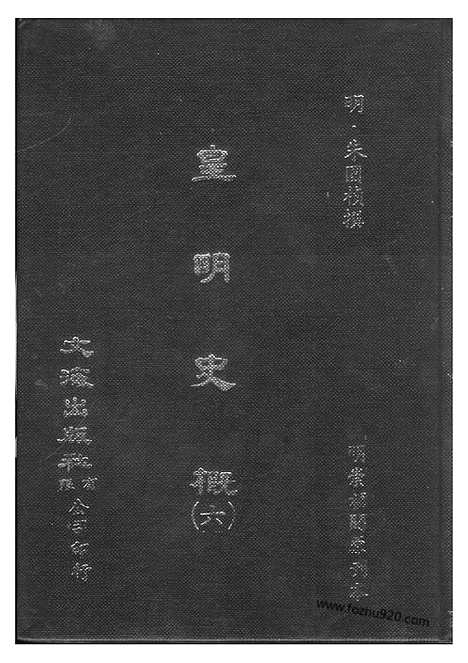 明·朱國禎撰
明崇禎間原刊本
皇明史概
(六)
文海出版社有限公司印行
www.fozhu920.com